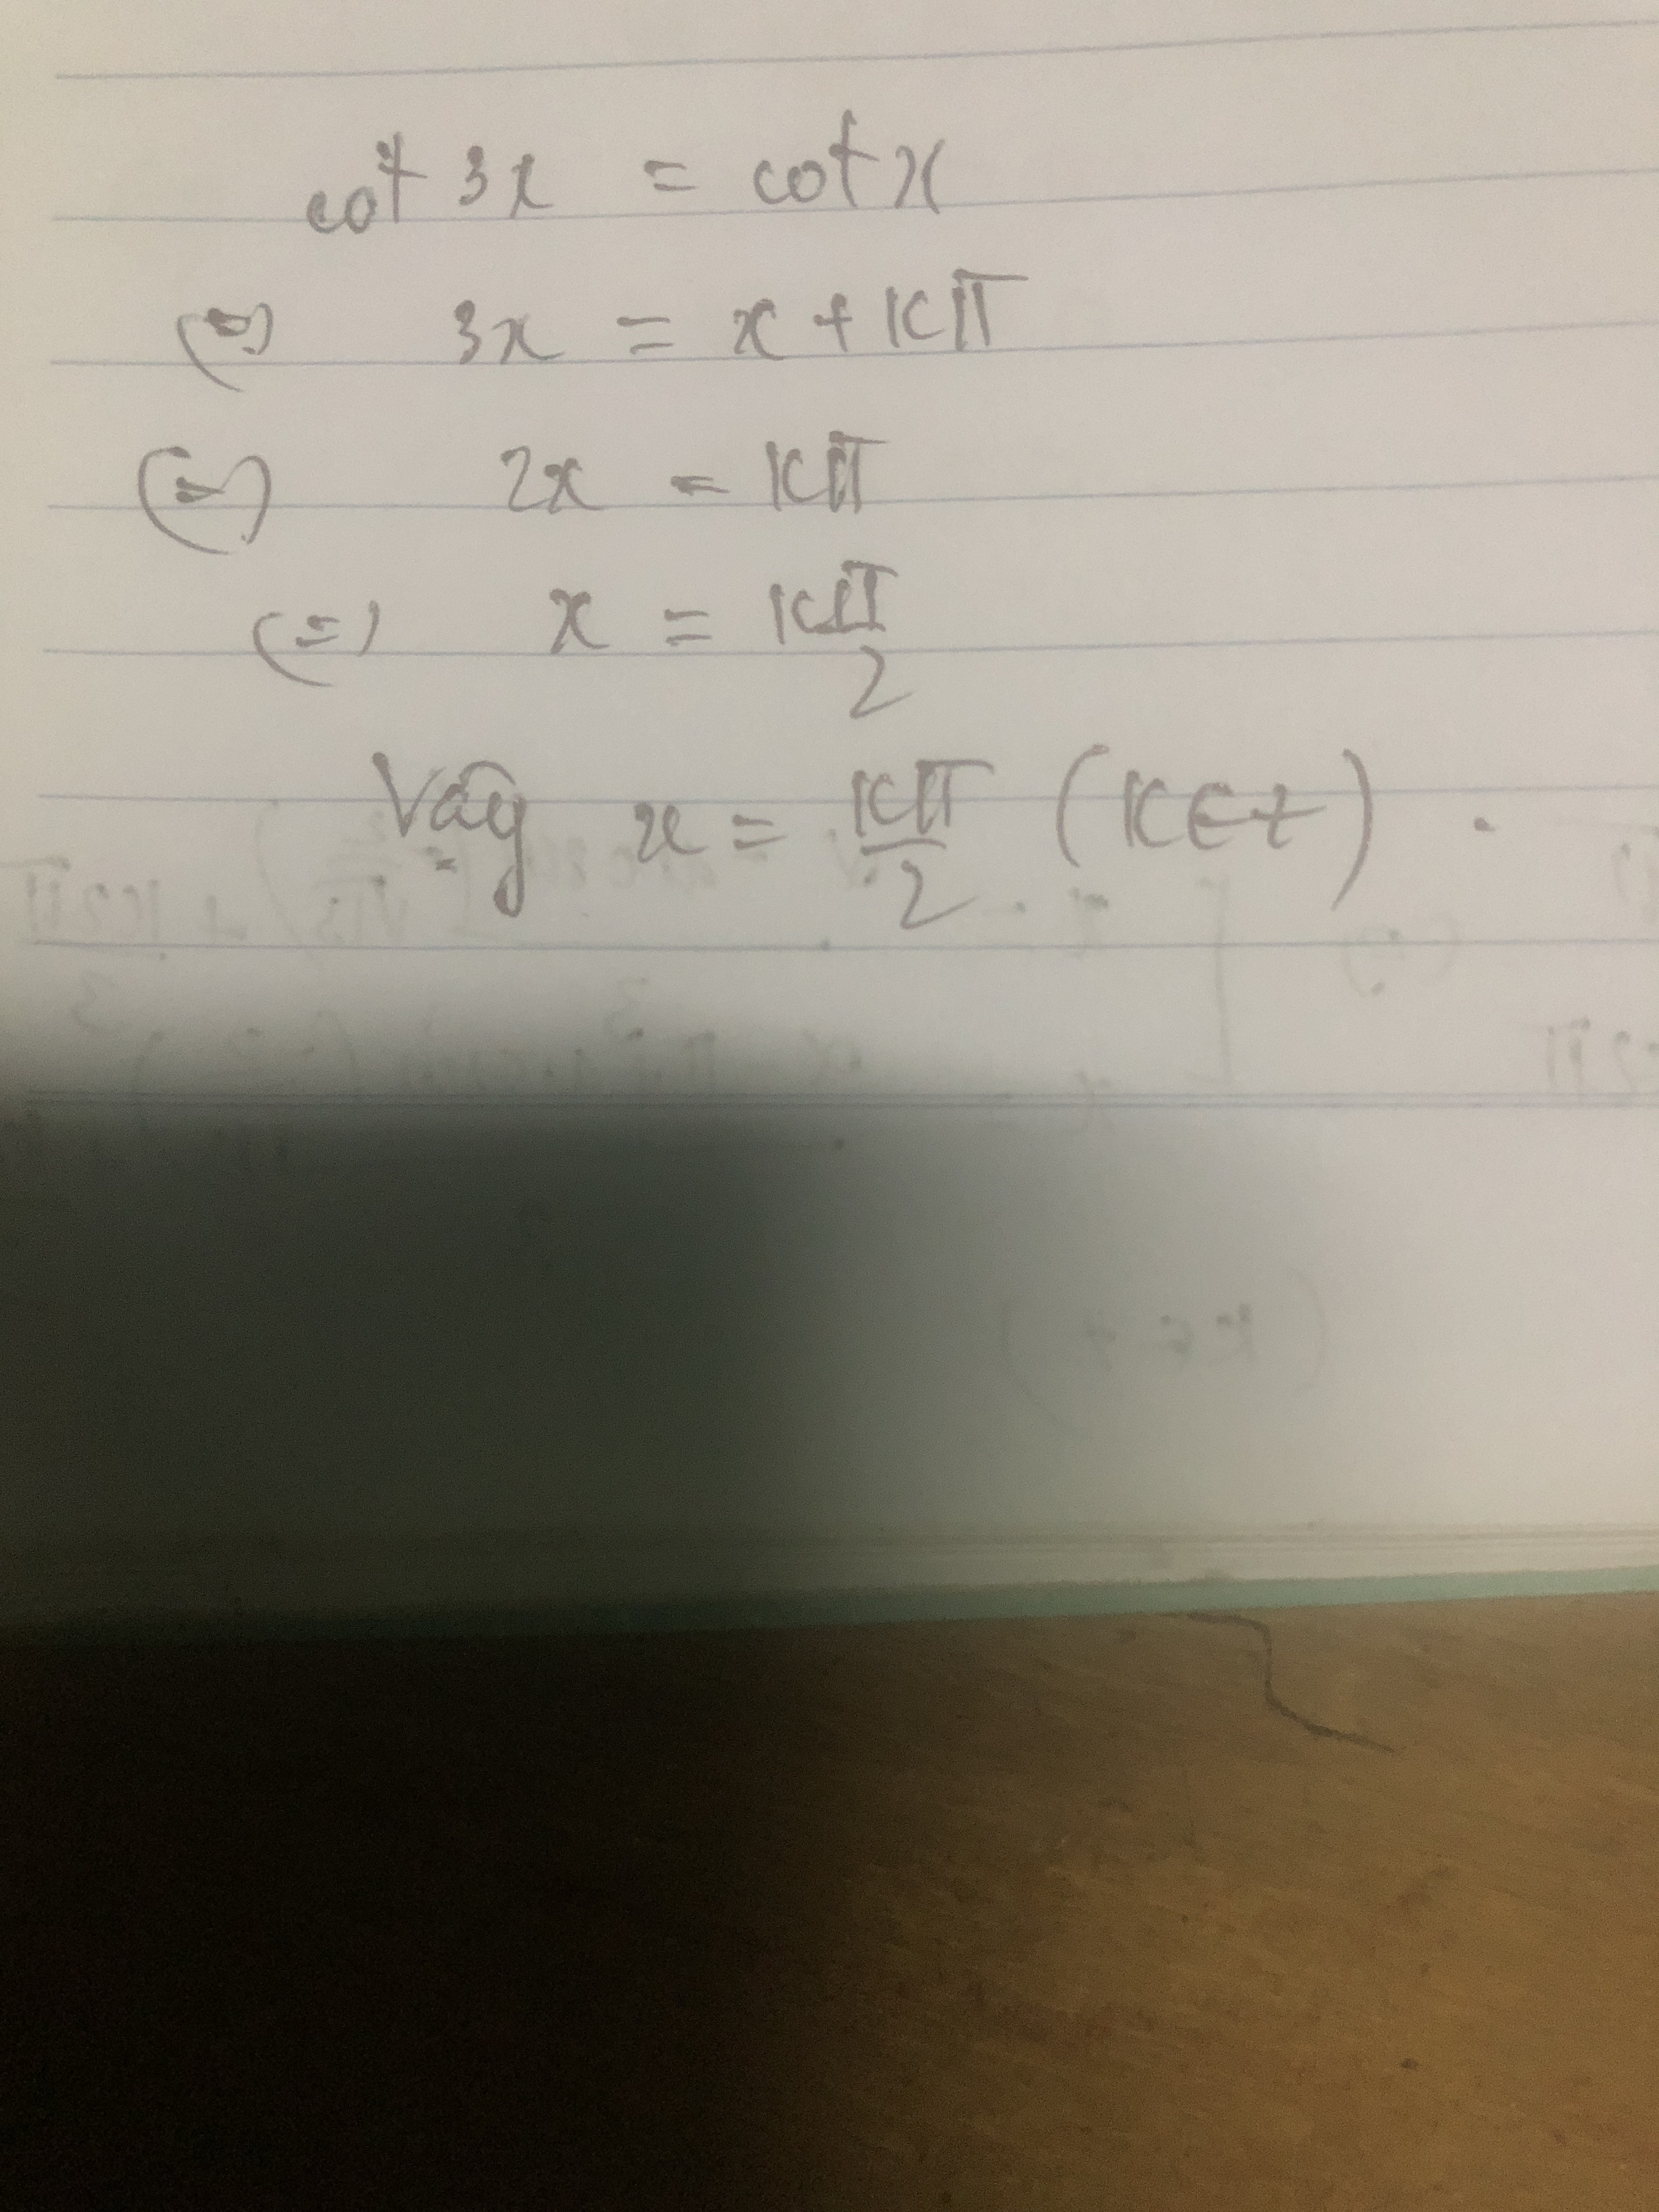 cot 3x = cot x
(=) 3x = x + kπ
(=) 2x = kπ
(=) x = kπ/2
Vậy x = kπ/2 (k ∈ z).